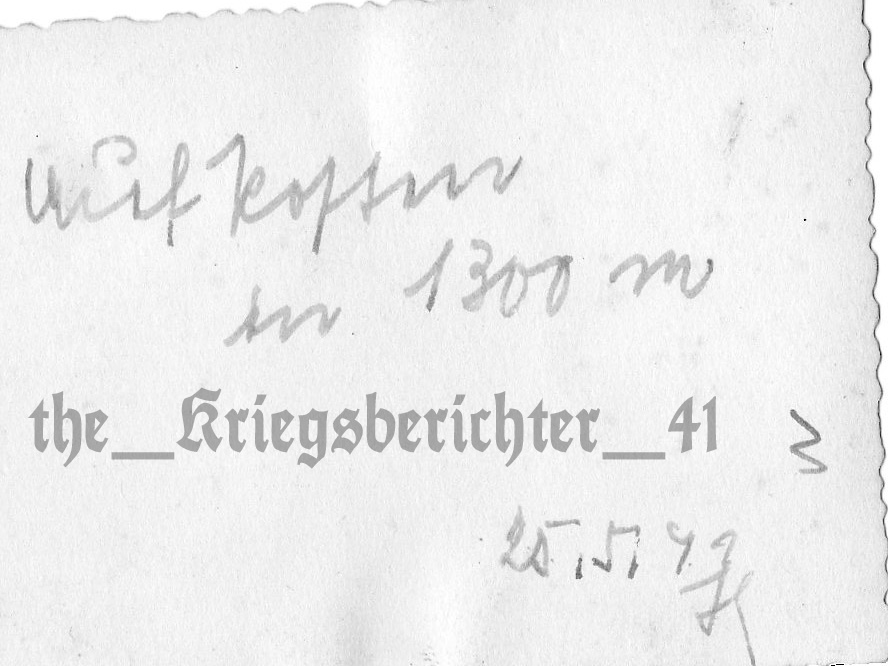 Auf Posten
in 1300 m
the__Kriegsberichter__41
25.5.43